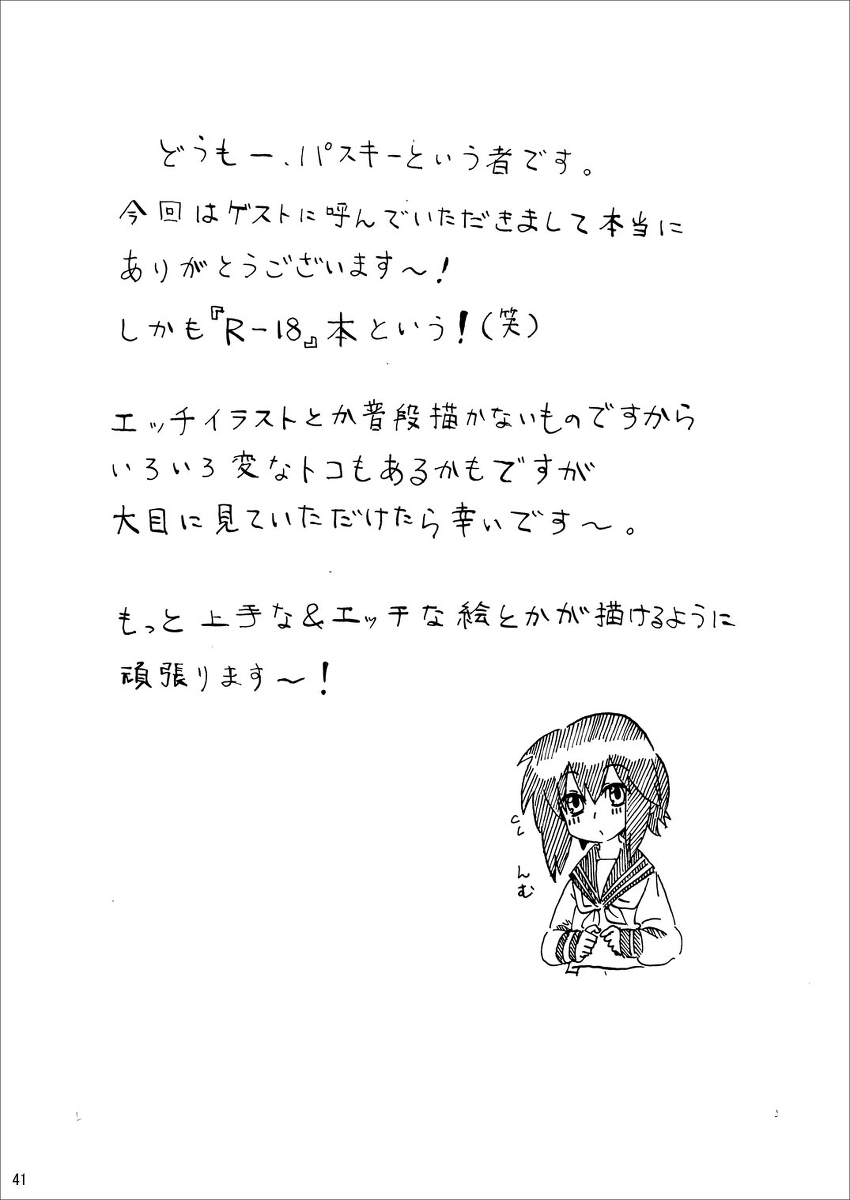 どうもー、パスキーという者です。
今回はゲストに呼んでいただきまして本当に
ありがとうございます～！
しかも『R-18』本という！(笑)
エッチイラストとか普段描かないものですから
いろいろ変なトコもあるかもですが
大目に見ていただけたら幸いです～。
もっと上手な&エッチな絵とかが描けるように
頑張ります～！
んむ
41